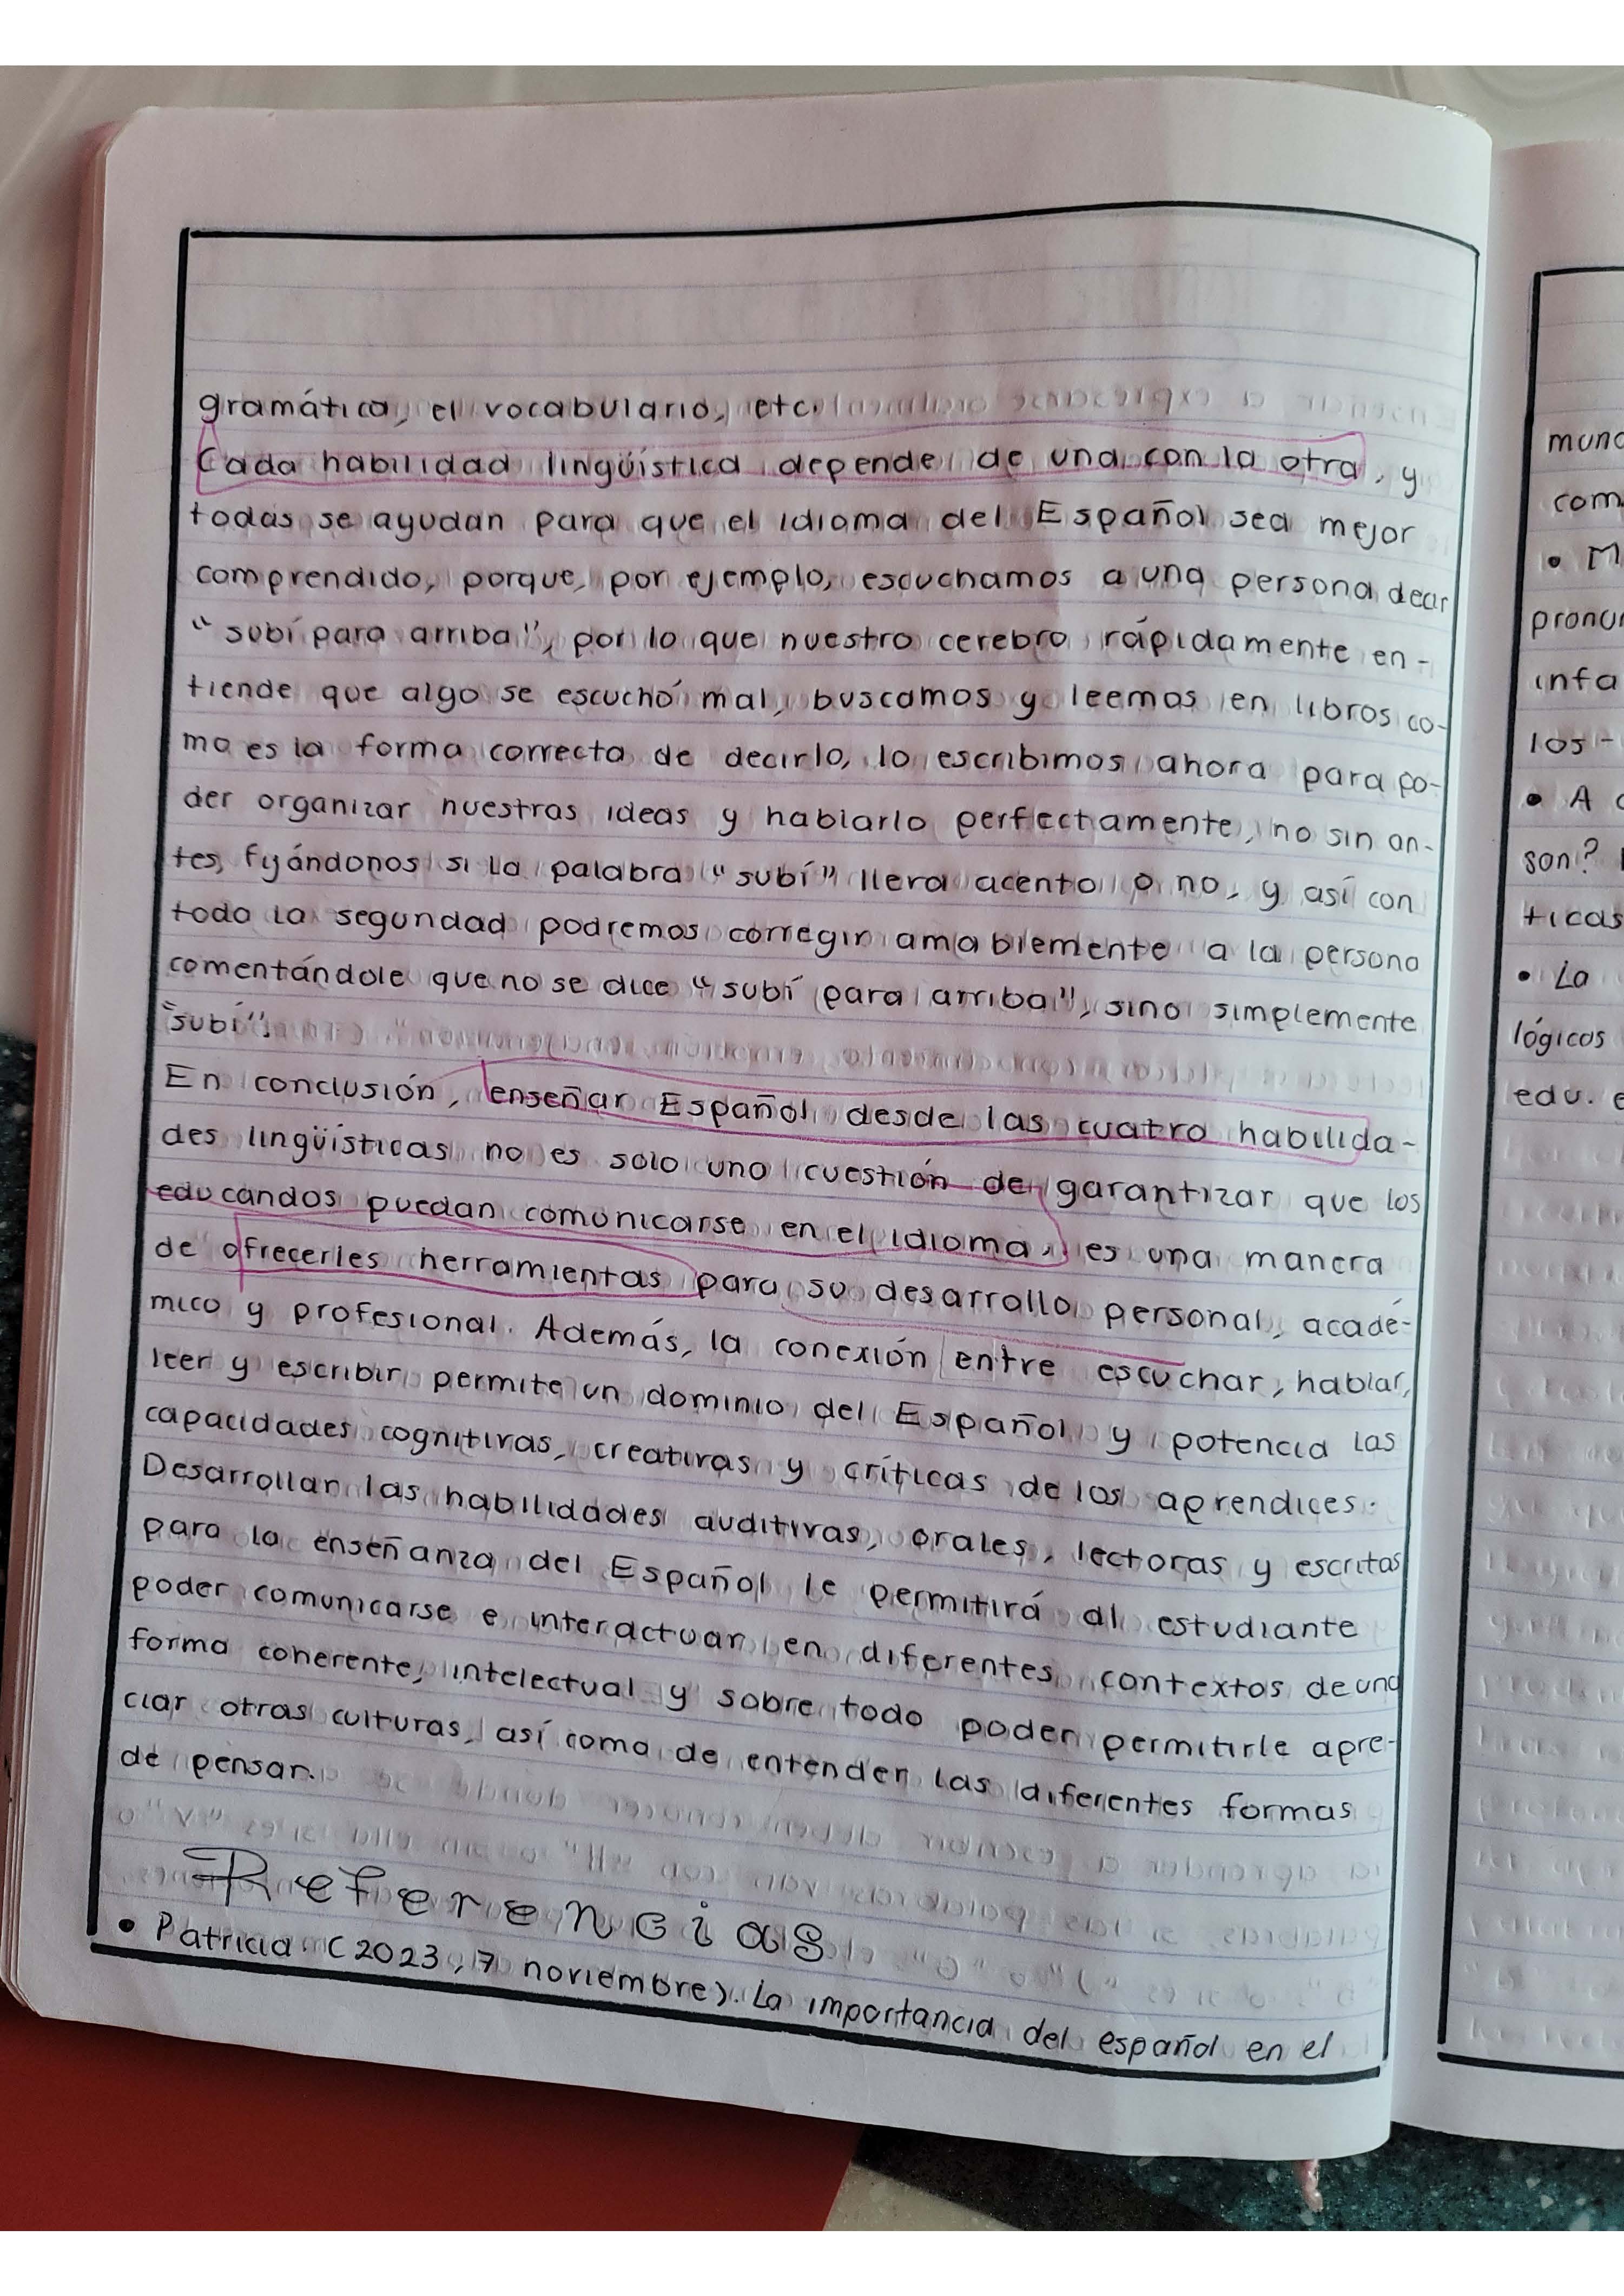 gramática, el vocabulario, etc.
Cada habilidad lingüística depende de una con la otra, y
todas se ayudan para que el idioma del Español sea mejor
comprendido, porque, por ejemplo, escuchamos a una persona decir
"subí para arriba", por lo que nuestro cerebro rápidamente en-
tiende que algo se escuchó mal, buscamos y leemos en libros co-
mo es la forma correcta de decirlo, lo escribimos ahora para po-
der organizar nuestras ideas y hablarlo perfectamente, no sin an-
tes, fijándonos si la palabra "subí" lleva acento o no, y así con
toda la seguridad podremos corregir amablemente a la persona
comentándole que no se dice "subí para arriba", sino simplemente
"subí".
En conclusión, enseñar Español desde las cuatro habilida-
des lingüísticas no es solo una cuestión de garantizar que los
educandos puedan comunicarse en el idioma, es una manera
de ofrecerles herramientas para su desarrollo personal, acadé-
mico y profesional. Además, la conexión entre escuchar, hablar,
leer y escribir, permite un dominio del Español y potencia las
capacidades cognitivas, creativas y críticas de los aprendices.
Desarrollar las habilidades auditivas, orales, lectoras y escritas
para la enseñanza del Español le permitirá al estudiante
poder comunicarse e interactuar en diferentes contextos de una
forma coherente, intelectual y sobre todo poder permitirle apre-
ciar otras culturas, así como de entender las diferentes formas
de pensar.
Referencias
• Patricia (2023, 7 noviembre). La importancia del español en el
com
• M
infa
los -
• A
son?
ticas
• La
lógicos
edu. e